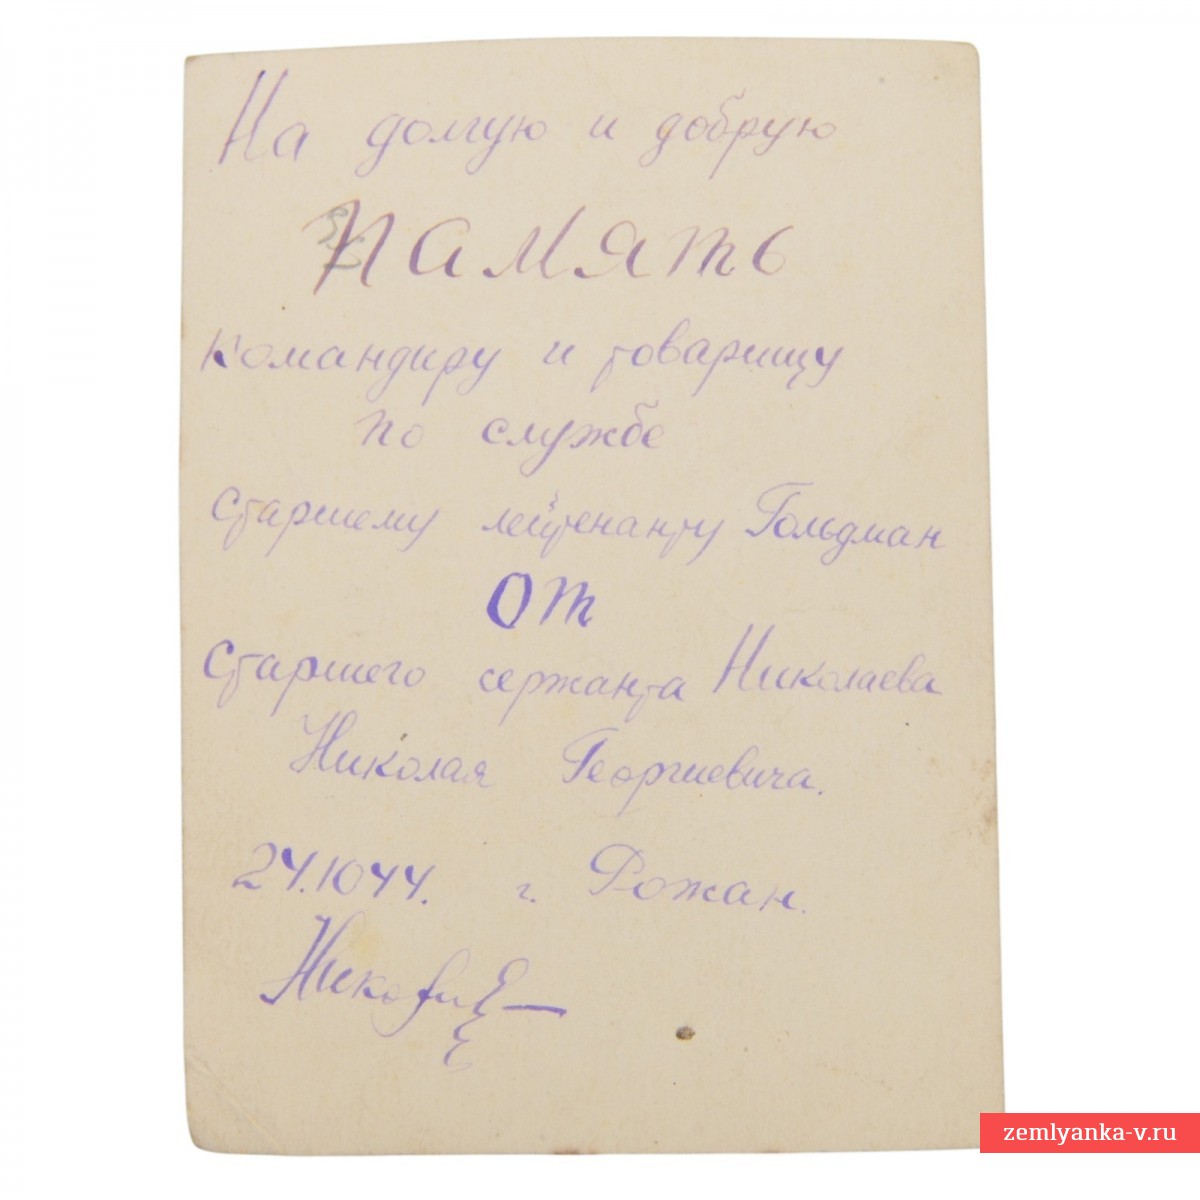 На долгую и добрую
память
командиру и товарищу
по службе
старшему лейтенанту Гольдман
от
старшего сержанта Николаева
Николая Георгиевича.
24.10.44. г. Рожан.
zemlyanka-v.ru